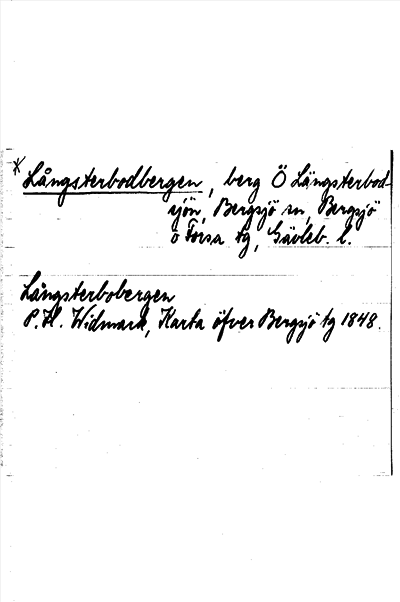 * Långsterbodbergen, berg Ö Längsterbod-
sjön, Bergsjö sn, Bergsjö
o Forsa tg, Gävleb. l.
Långsterbobergen
P. H. Widmark, Karta öfver Bergsjö tg 1848.